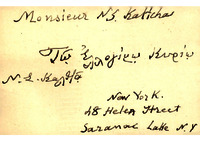 Monsieur N. S. Kaltcha
Τῷ ἐλλογίμῳ Κυρίῳ
N. S. Καλτσᾷ
New York.
48 Helen Street
Saranac Lake N.Y